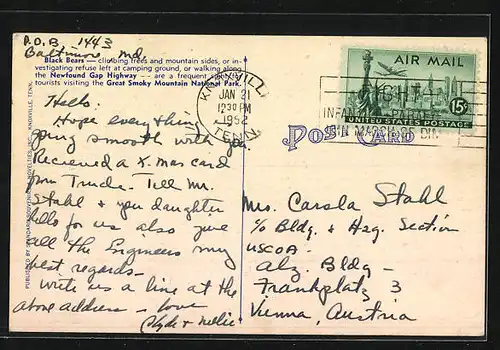 P.O.B. 1443
Baltimore Md.
Black Bears — climbing trees and mountain sides, or in-
vestigating refuse left at camping ground, or walking along
the Newfound Gap Highway — are a frequent sight to
tourists visiting the Great Smoky Mountain National Park.
Hello:
Hope everything
going smooth with you.
Recieved a X.mas card
from Trude. Tell Mr.
Stahl & your daughter
hello for us also give
all the Engineers my
best regards—
Write us a line at the
above address — love
Clyde & Nellie
KNOXVILLE
JAN 31
12:30 PM
1952
TENN.
AIR MAIL
15¢
UNITED STATES POSTAGE
FIGHT
INFANTILE PARALYSIS
JOIN MARCH OF DIMES
POST CARD
Mrs. Carola Stahl
c/o Bldg. & Hsg. Section
USCOA
Alz. Bldg —
Frankplatz 3
Vienna, Austria